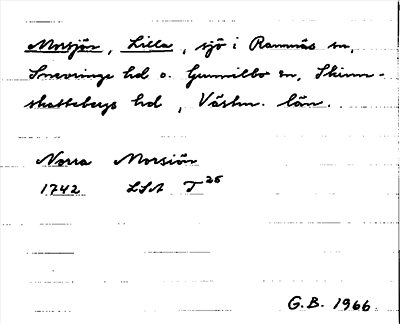 Morsjön, Lilla, sjö i Ramnäs sn,
Snevringe hd o. Gunnilbo sn, Skinn-
skattebergs hd, Västm. län.
Norra Morsiön
1742 LSA T 26
G.B. 1966.